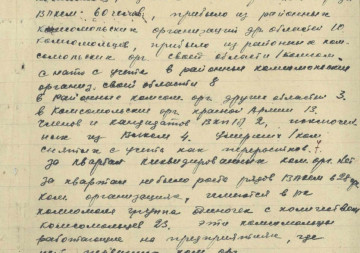 ВЛКСМ: 80 человек, прибыло из районных
комсомольских организаций др. области 10
комсомольцев, прибыло из районных ком-
сомольских орг. своей области
снято с учета в районные комсомольские
организ. своей области 8
в районные комсом. орг. других областей 3.
в комсомольские орг. Красной Армии 13.
членов и кандидатов ВКП(б) 2, исключен-
ных из ВЛКСМ 4. умерших
снятых с учета как переростков.
За квартал ликвидированных ком. орг. нет
за квартал не было роста рядов ВЛКСМ в 28
ком. организациях, имеются в
комсомола группа одиночек с количеством
комсомольцев 23. это комсомольцы
работающие на предприятиях, где